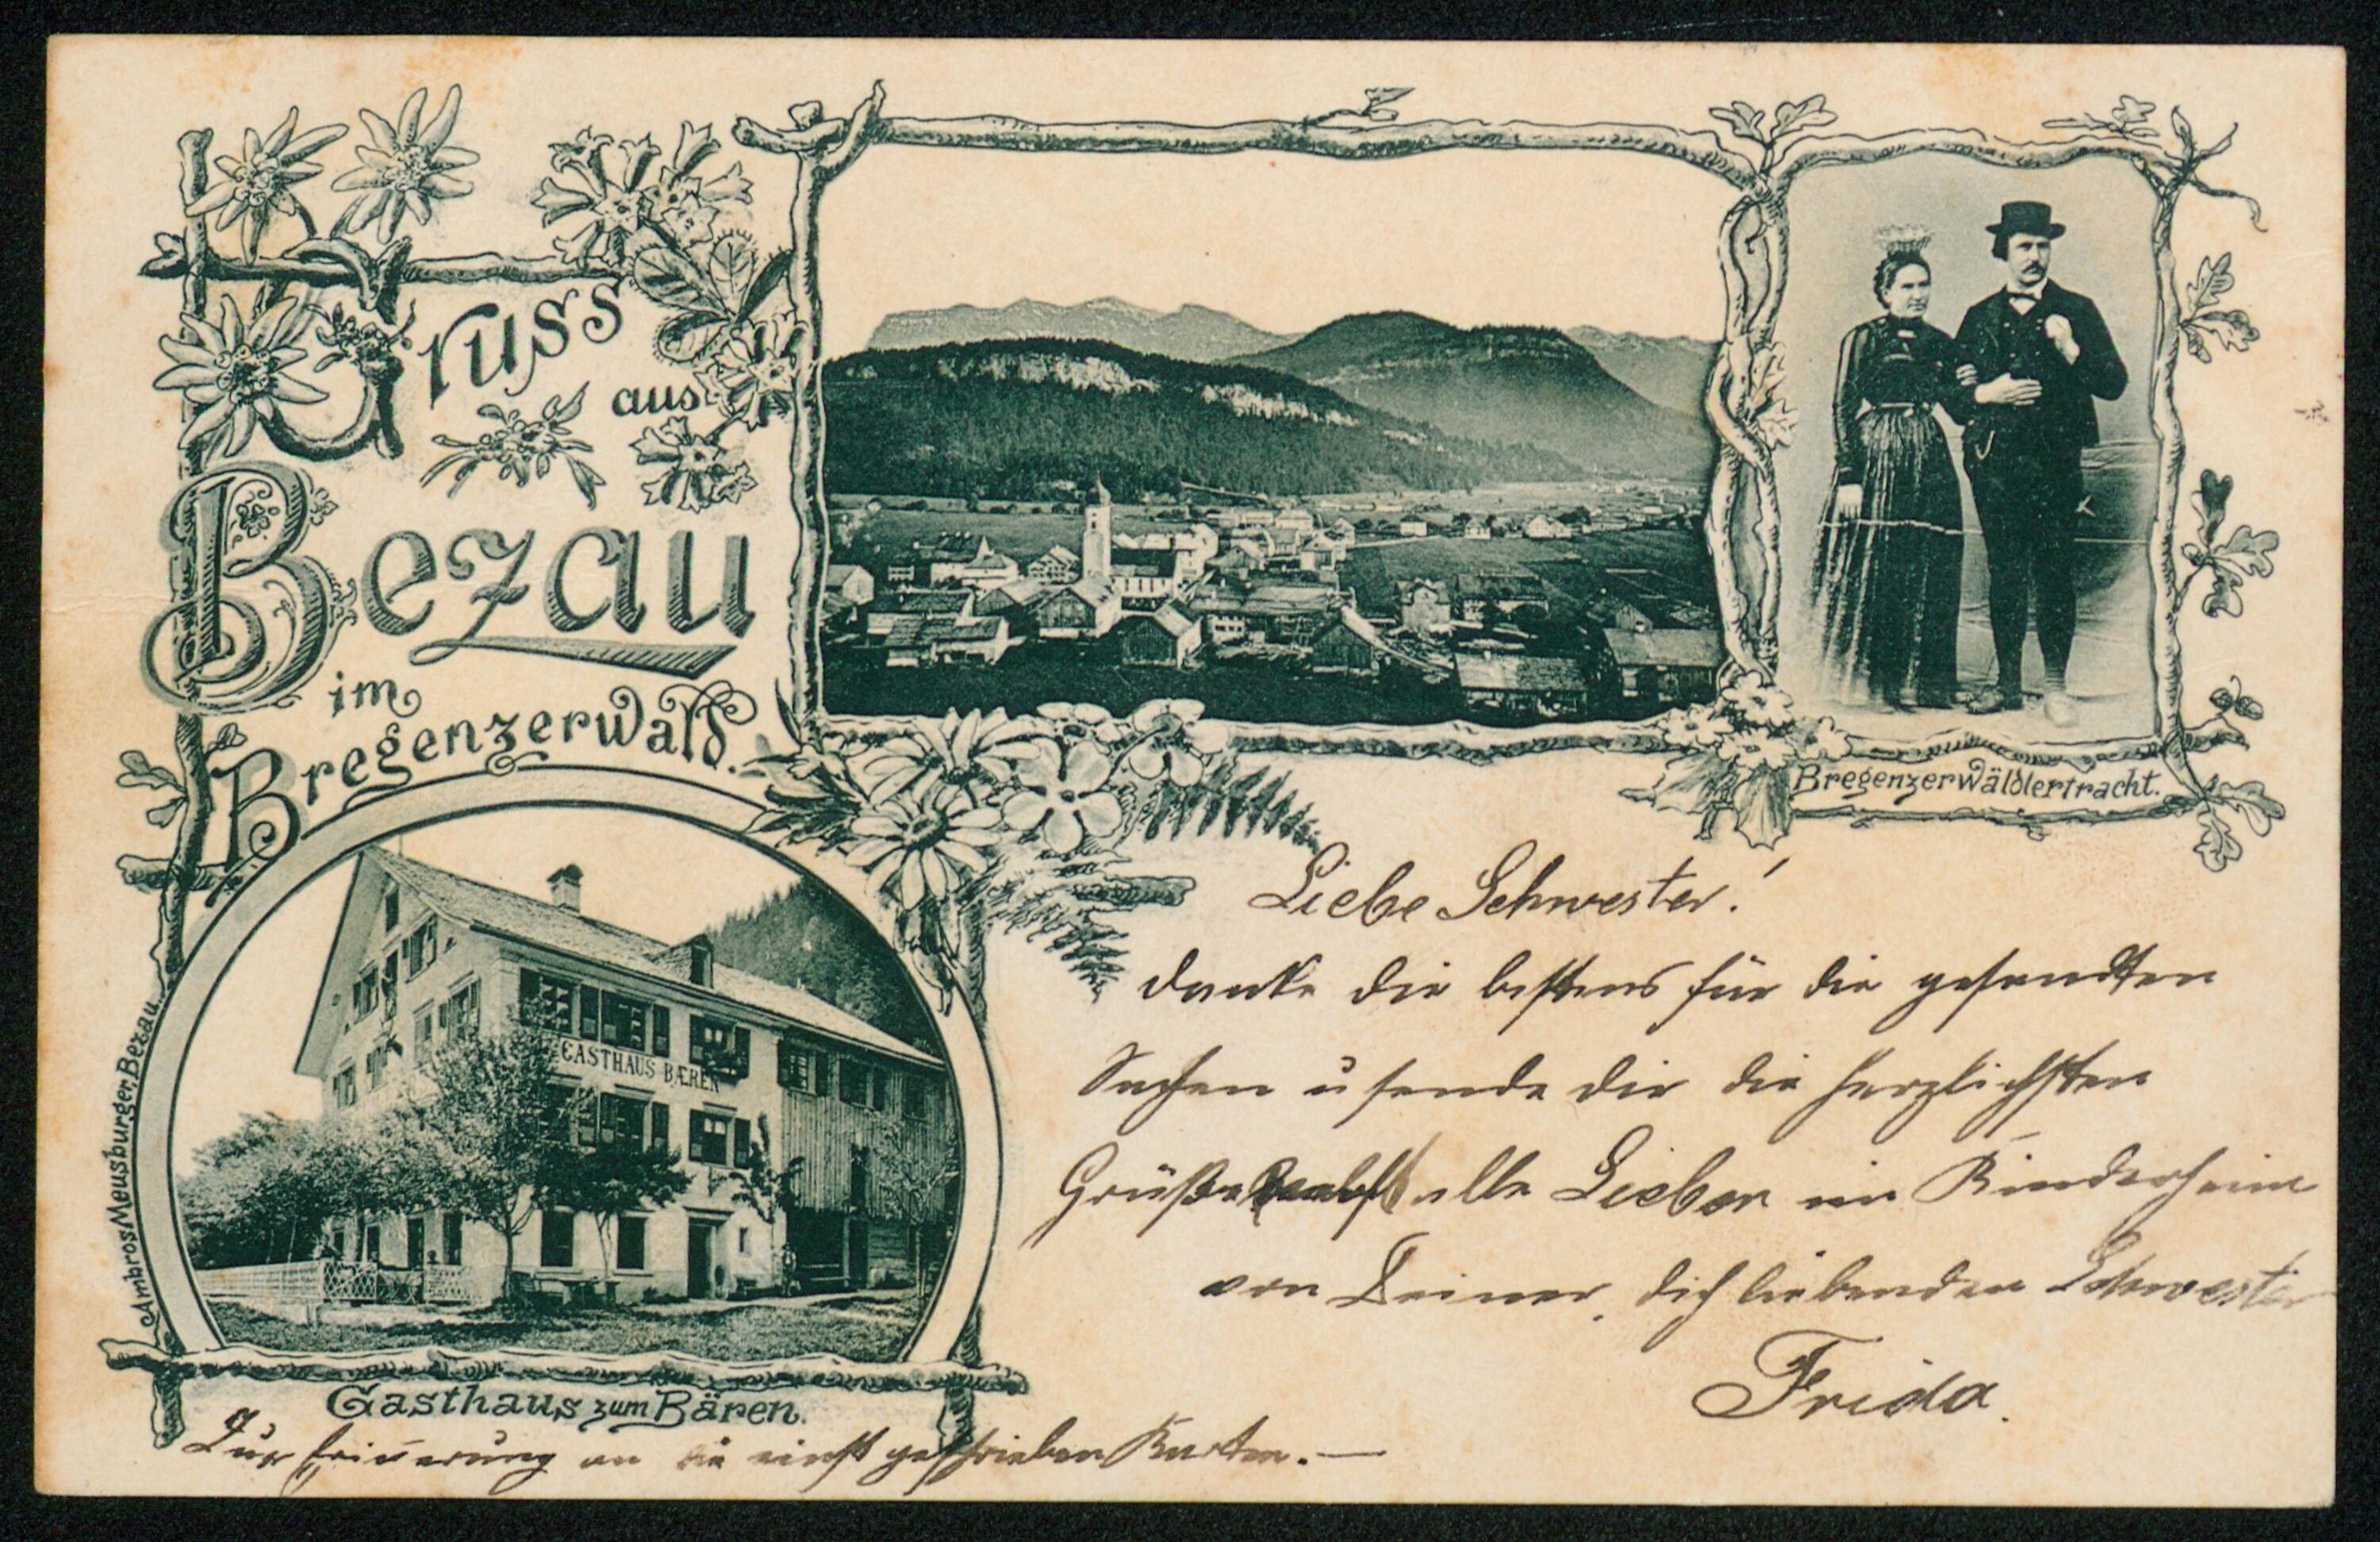 Gruss
aus
Bezau
im
Bregenzerwald.
Bregenzerwäldlertracht.
GASTHAUS BÆREN
Ambros Meusburger, Bezau.
Gasthaus zum Bären.
Liebe Schwester!
danke dir bestens für die gesandten
Sachen u sende dir die herzlichsten
Grüße alle Lieben im Kinderheim
von Deiner, dich liebenden Schwester
Frida.
Zur Erinerung an die einst geschrieben Karten. —